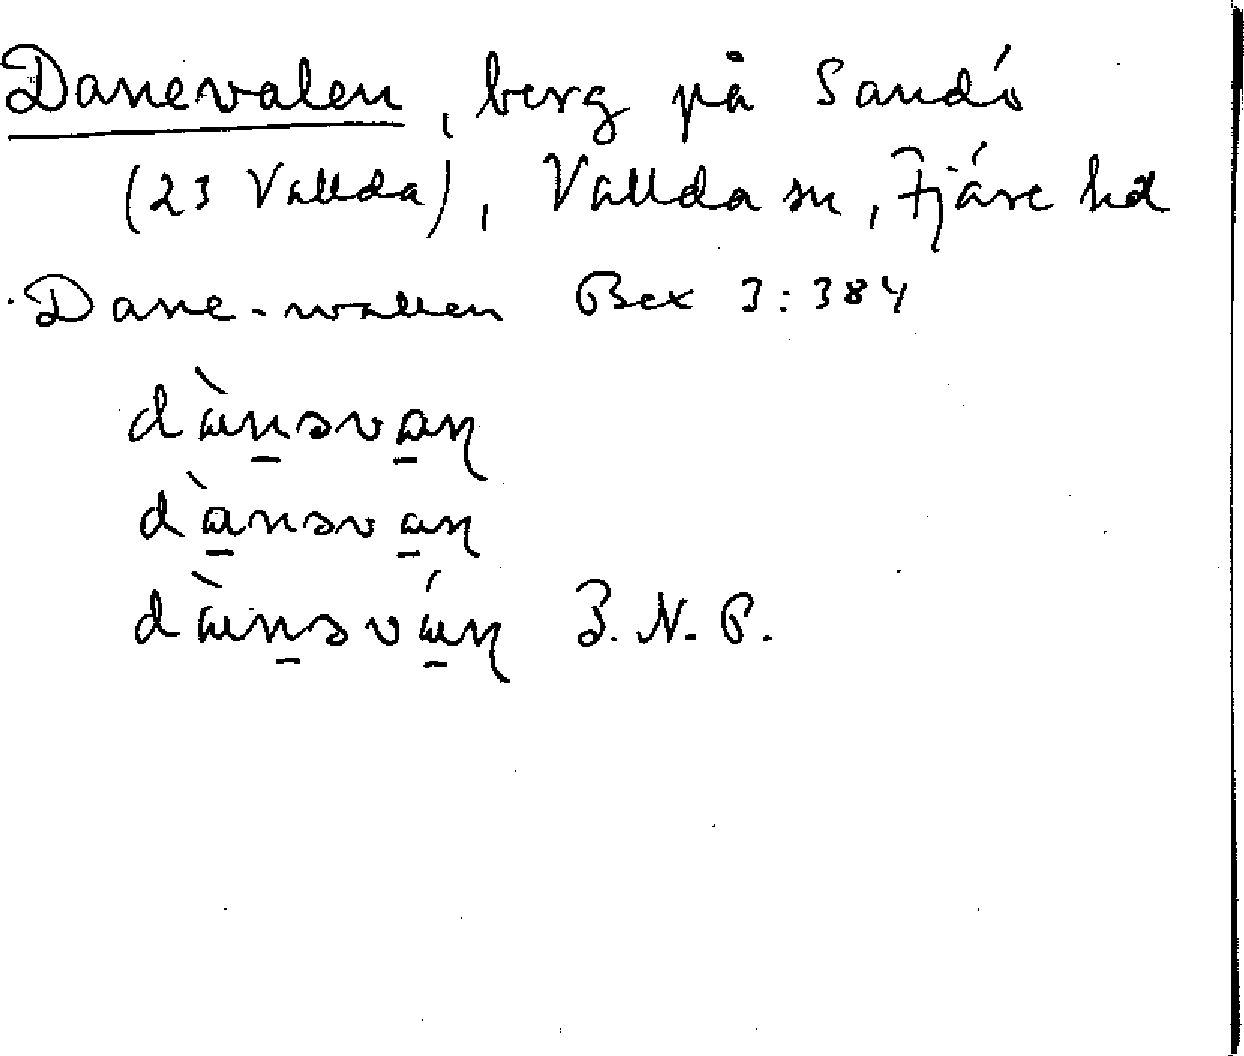 Danevalen, berg på Sandö
(23 Vallda), Vallda sn, Fjäre hd
Dane-wallen Bex 3:384
dànəvaɳ
dànəvaɳ
dànəváɳ